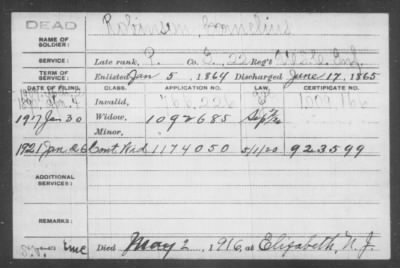 DEAD
NAME OF SOLDIER: Robinson, Cornelius
SERVICE: Late rank, P. Co. G, 22 Reg't Inf.
TERM OF SERVICE: Enlisted Jan 5, 1864 Discharged June 17, 1865
DATE OF FILING. CLASS. APPLICATION NO. LAW. CERTIFICATE NO.
Invalid,
1917 Jan 30 Widow, 1092685
Minor,
1921 Jan 26 Cont. Wid 1174050 5/1/20 923599
ADDITIONAL SERVICES:
REMARKS:
Died May 2, 1916, at Elizabeth, N.J.